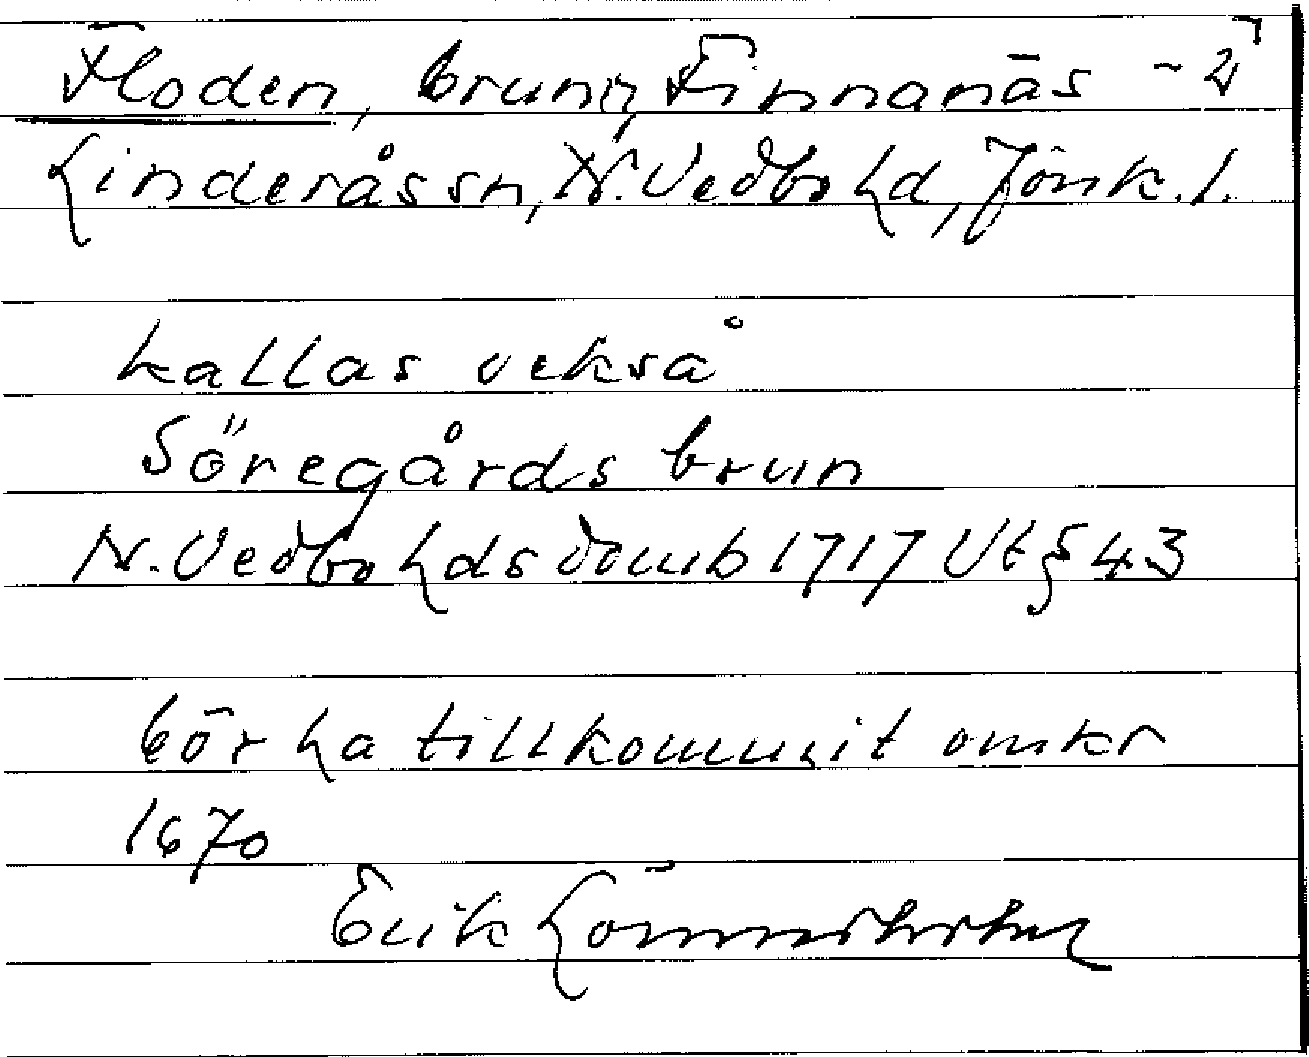 Floden, brunn, Finnanäs
Linderås sn, N. Vedbo hd, Jönk. l.
kallas också
Söregårds brun
N. Vedbo hds domb 1717 Vt § 43
bör ha tillkommit omkr
1670
Erik